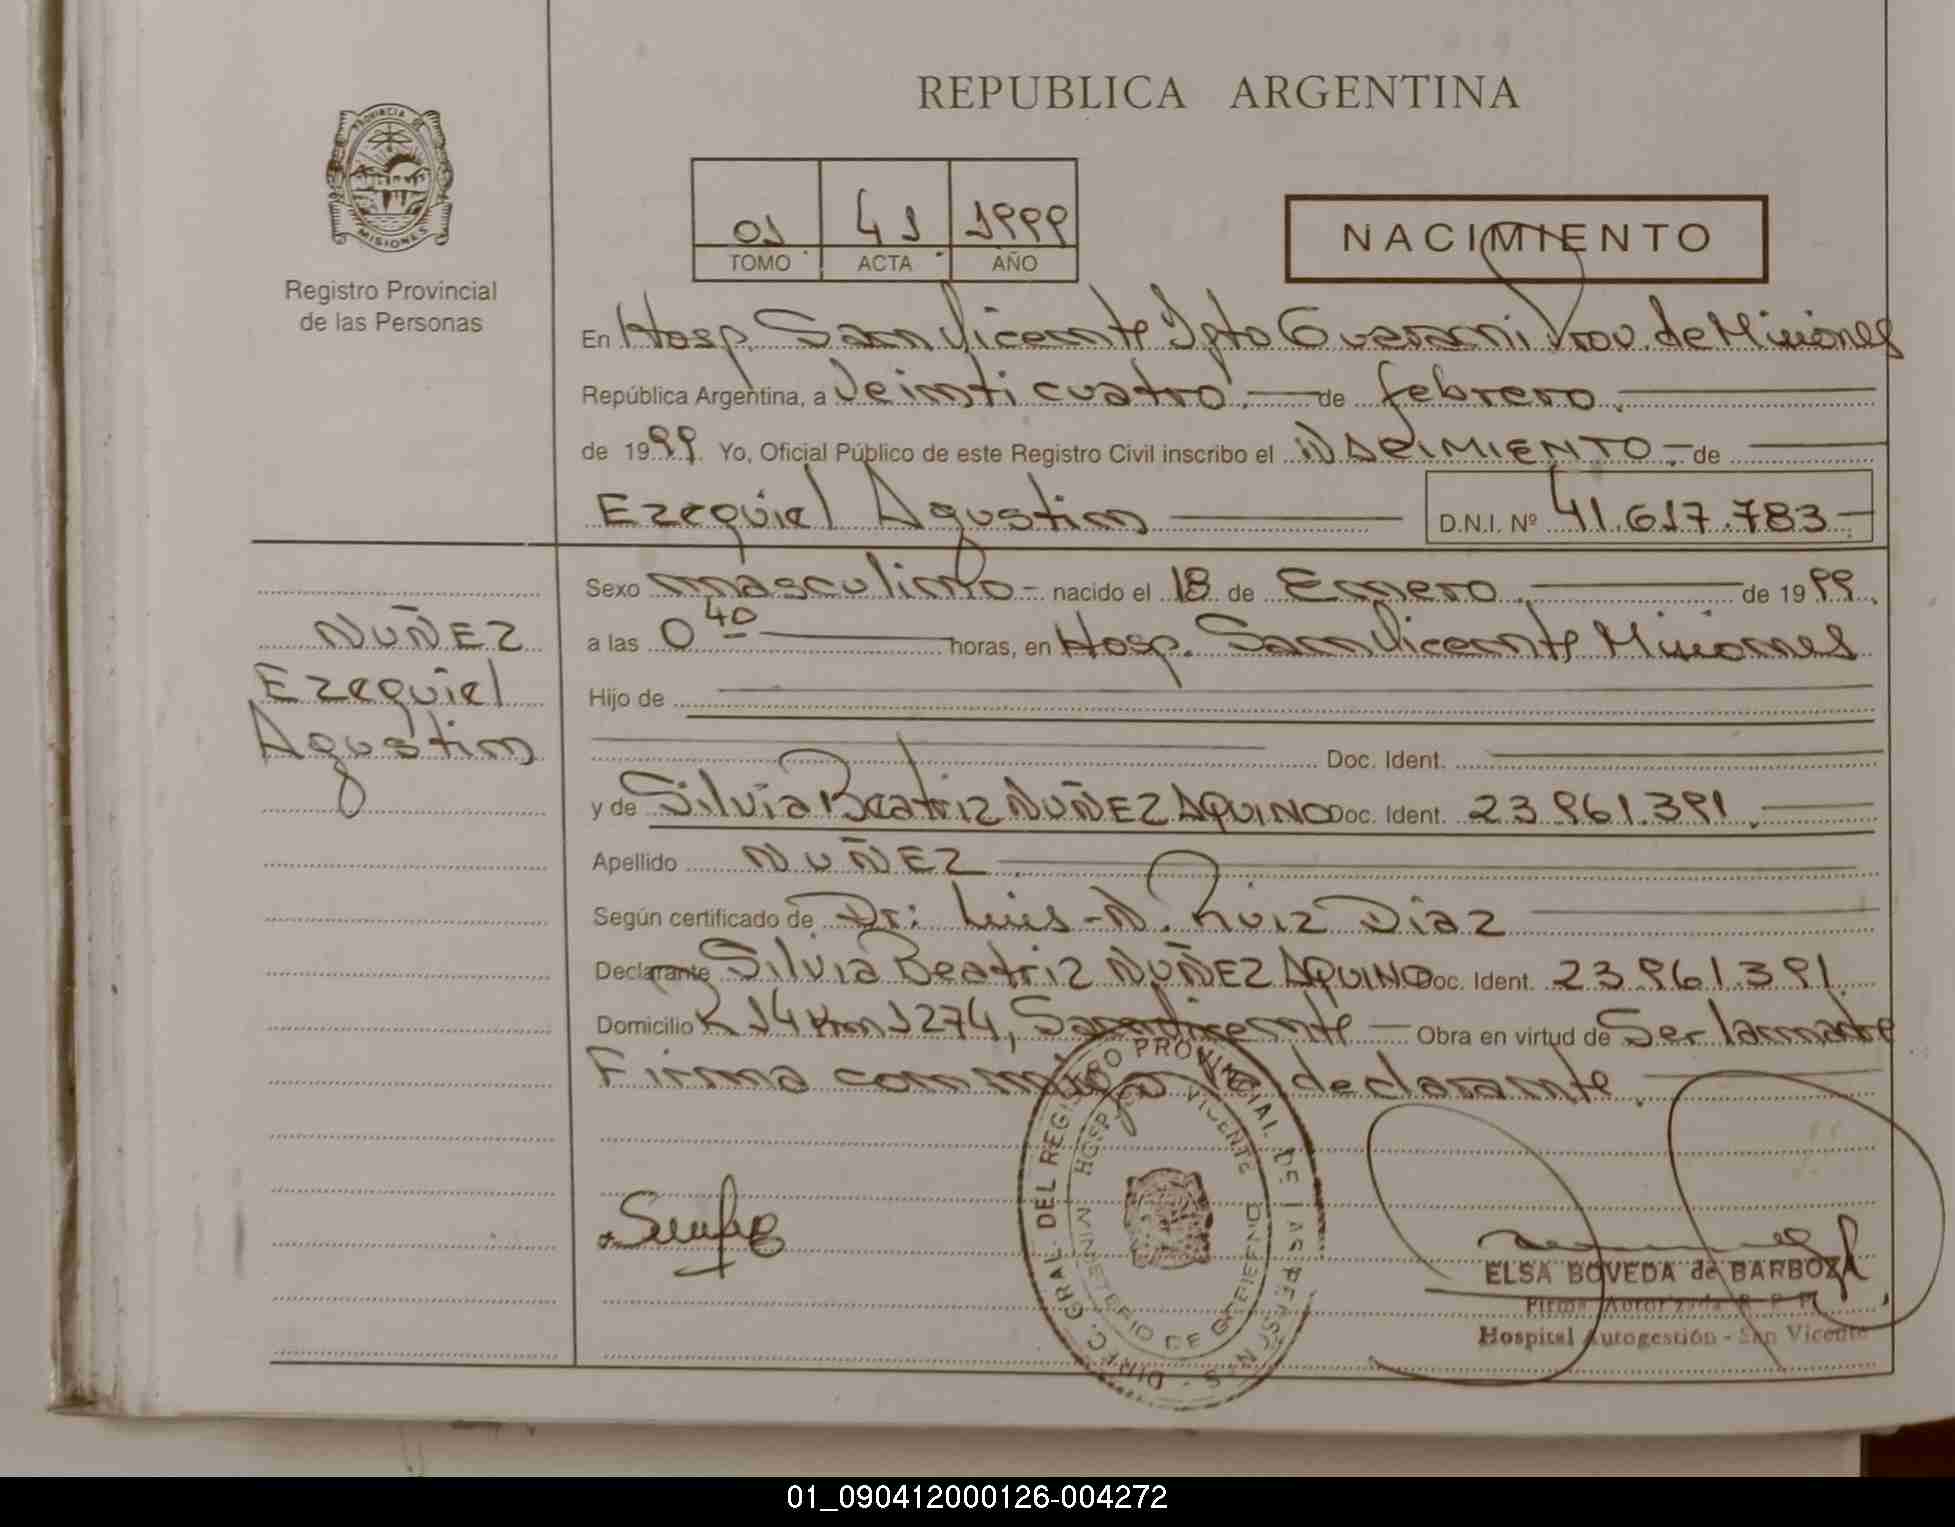 REPUBLICA ARGENTINA
PROVINCIA DE
MISIONES
Registro Provincial
de las Personas
01 41 1999
TOMO ACTA AÑO
NACIMIENTO
En Hosp. San Vicente Dpto Guarani Prov. de Misiones
República Argentina, a Veinticuatro.— de febrero.
de 1999. Yo, Oficial Público de este Registro Civil inscribo el NACIMIENTO.- de
Ezequiel Agustin D.N.I. Nº 41.617.783-
Sexo masculino- nacido el 18 de Enero. de 1999.
a las 0 40 horas, en Hosp. San Vicente Misiones
Hijo de
Doc. Ident.
y de Silvia Beatriz NUÑEZ AQUINO Doc. Ident. 23.961.391.
Apellido NUÑEZ
Según certificado de Dr: Luis-N. Ruiz Diaz
Declarante Silvia Beatriz NUÑEZ AQUINO Doc. Ident. 23.961.391.
Domicilio R 14 Km 1274, San Vicente — Obra en virtud de Ser la madre
Firma conmigo la declarante.
NUÑEZ
Ezequiel
Agustin
DIREC. GRAL. DEL REGISTRO PROVINCIAL DE LAS PERSONAS
HOSP. VICENTE
ELSA BOVEDA de BARBOZA
Firma Autorizada R. P. P.
Hospital Autogestión - San Vicente
01_090412000126-004272